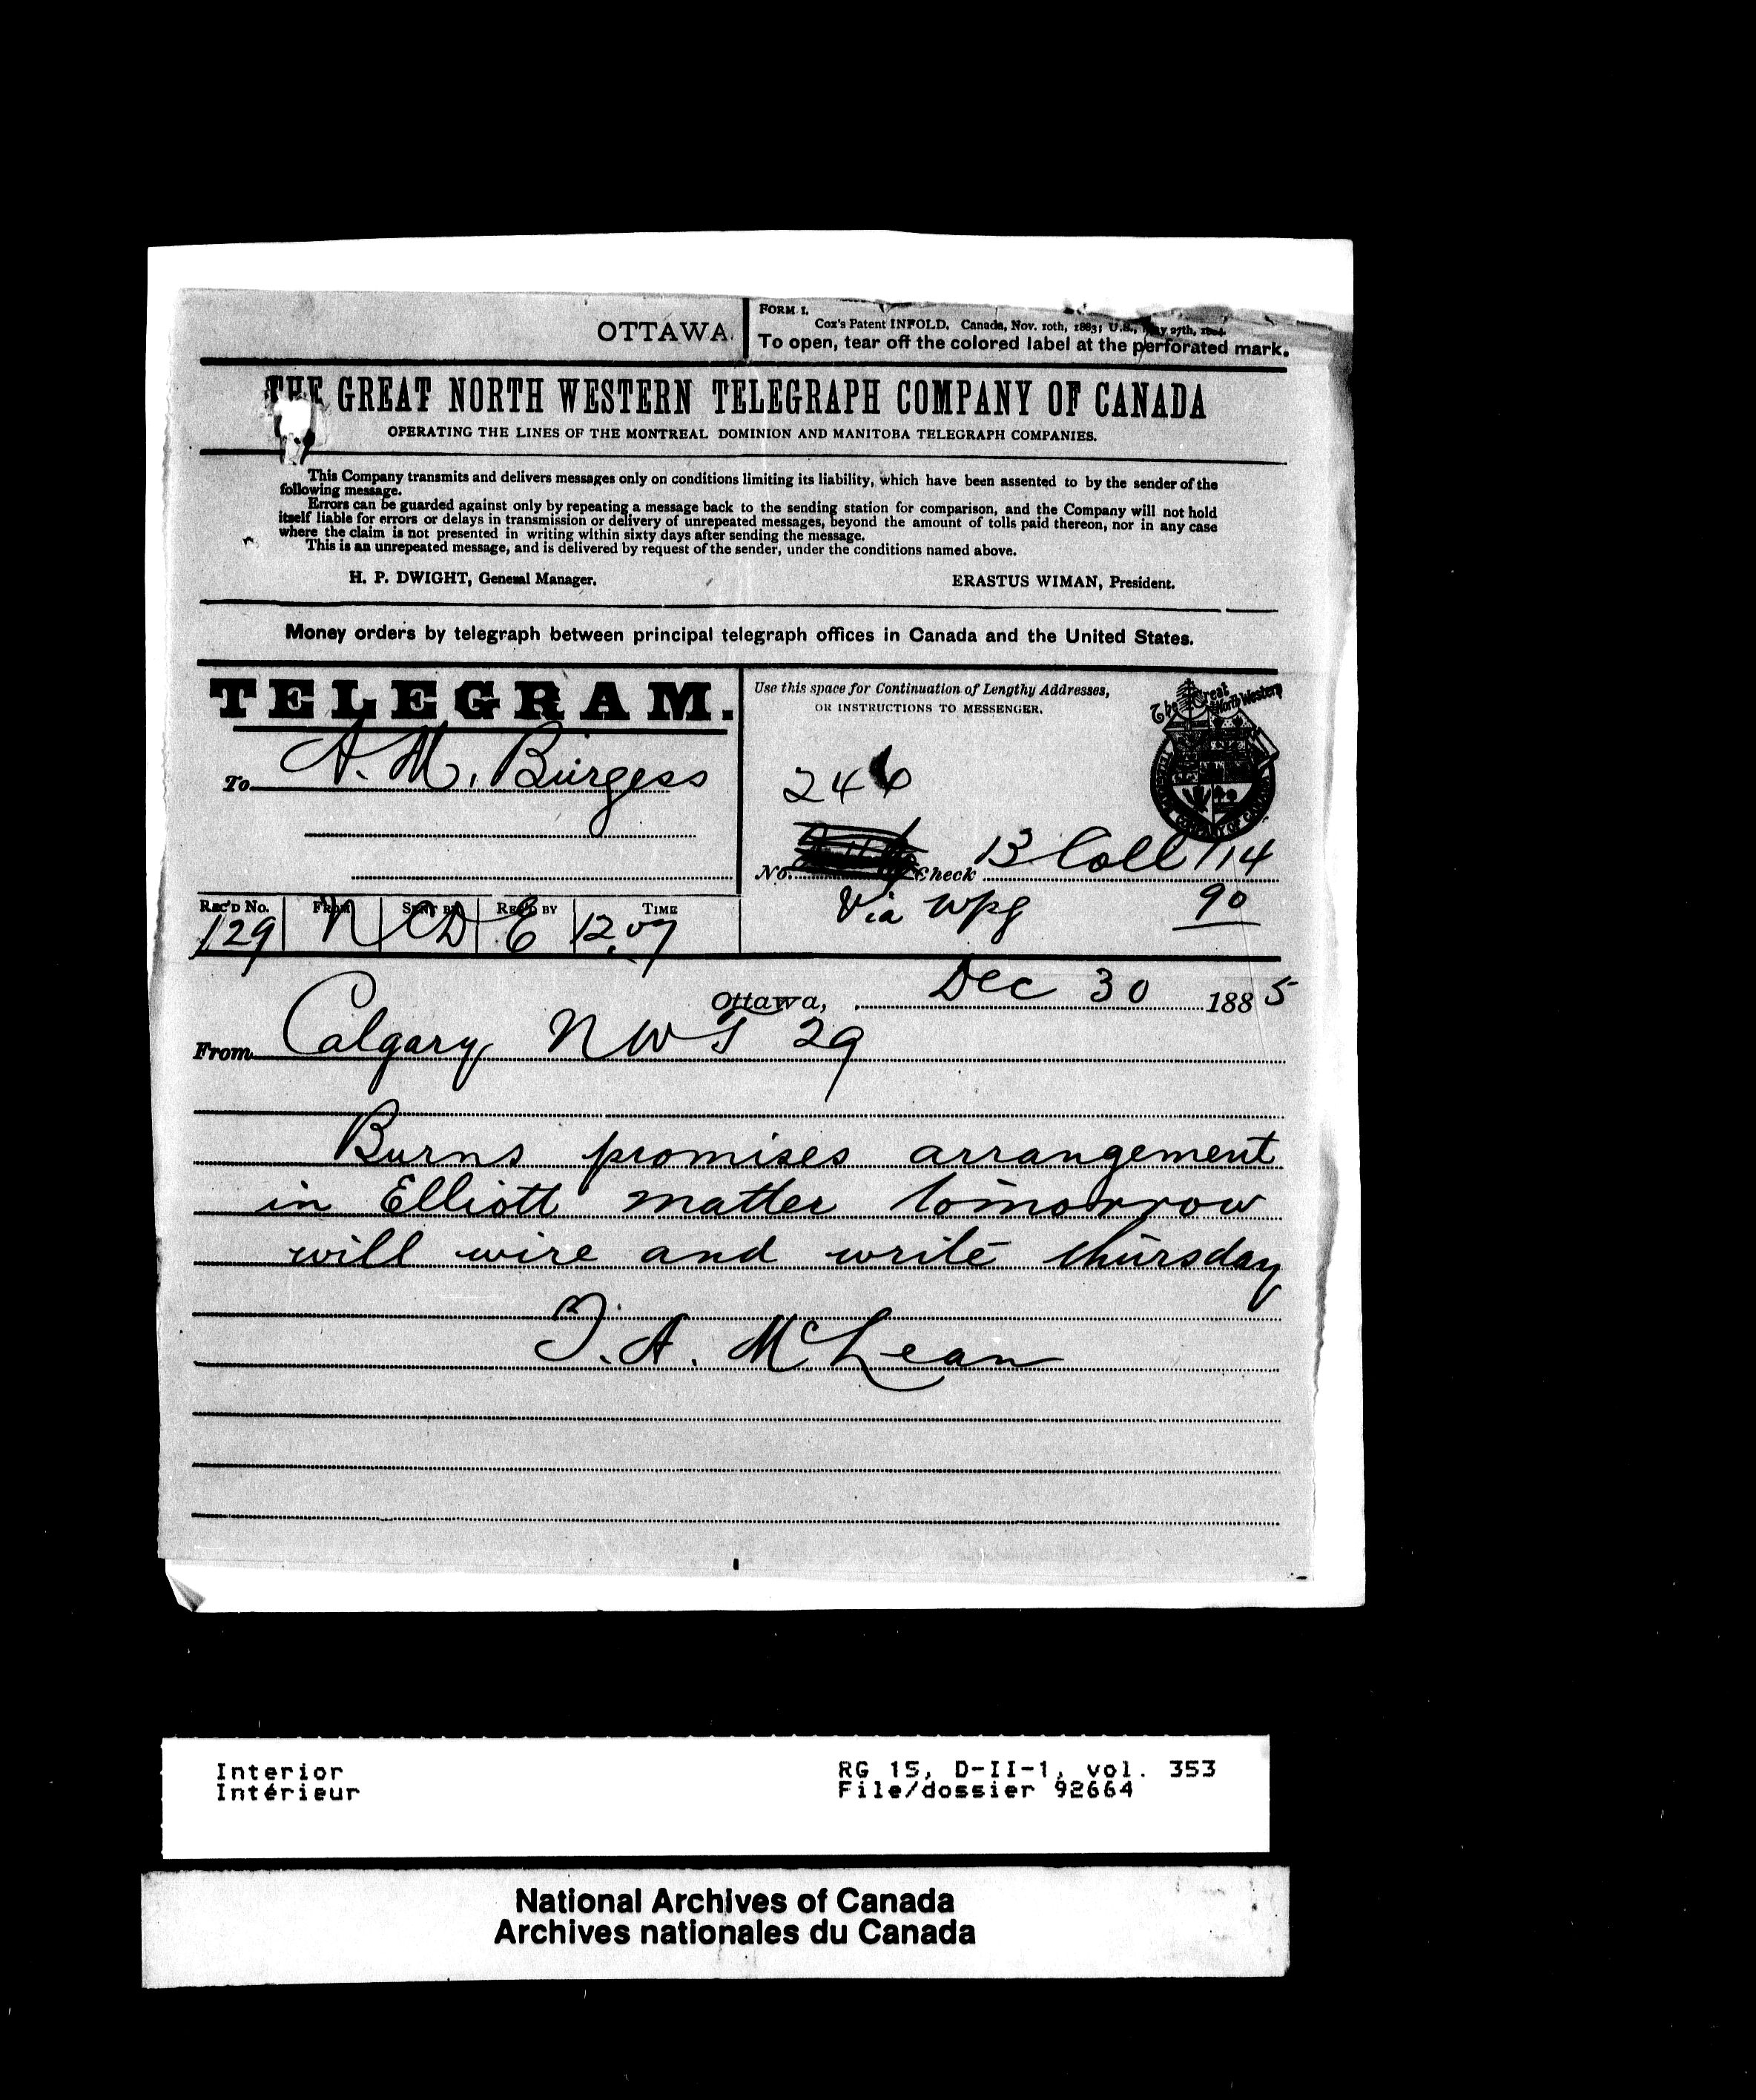 OTTAWA.
FORM 1.
Cox's Patent INFOLD, Canada, Nov. 10th, 1883; U.S., May 27th,
To open, tear off the colored label at the perforated mark.
THE GREAT NORTH WESTERN TELEGRAPH COMPANY OF CANADA
OPERATING THE LINES OF THE MONTREAL DOMINION AND MANITOBA TELEGRAPH COMPANIES.
This Company transmits and delivers messages only on conditions limiting its liability, which have been assented to by the sender of the
following message.
Errors can be guarded against only by repeating a message back to the sending station for comparison, and the Company will not hold
itself liable for errors or delays in transmission or delivery of unrepeated messages, beyond the amount of tolls paid thereon, nor in any case
where the claim is not presented in writing within sixty days after sending the message.
This is an unrepeated message, and is delivered by request of the sender, under the conditions named above.
H. P. DWIGHT, General Manager. ERASTUS WIMAN, President.
Money orders by telegraph between principal telegraph offices in Canada and the United States.
TELEGRAM.
To A. M. Burgess
Use this space for Continuation of Lengthy Addresses,
OR INSTRUCTIONS TO MESSENGER.
The Great North Western
246
No. Check 13 Coll 114
Via Wpg 90
REC'D No. FROM SENT BY REC'D BY TIME
129 N CD E 12.07
Ottawa, Dec 30 1885
From Calgary NWT 29
Burns promises arrangement
in Elliott matter tomorrow
will wire and write thursday
T. A. McLean
Interior
Intérieur
RG 15, D-II-1, vol. 353
File/dossier 92664
National Archives of Canada
Archives nationales du Canada